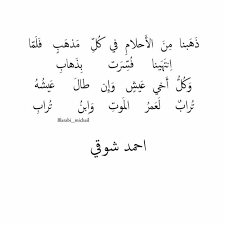 ذَهَبنا مِنَ الأَحلامِ في كُلِّ مَذهَبٍ فَلَمّا
اِنتَهَينا فُسِّرَت بِذَهابِ
وَكُلُّ أَخي عَيشٍ وَإِن طالَ عَيشُهُ
تُرابٌ لَعَمرُ المَوتِ وَاِبنُ تُرابِ
احمد شوقي